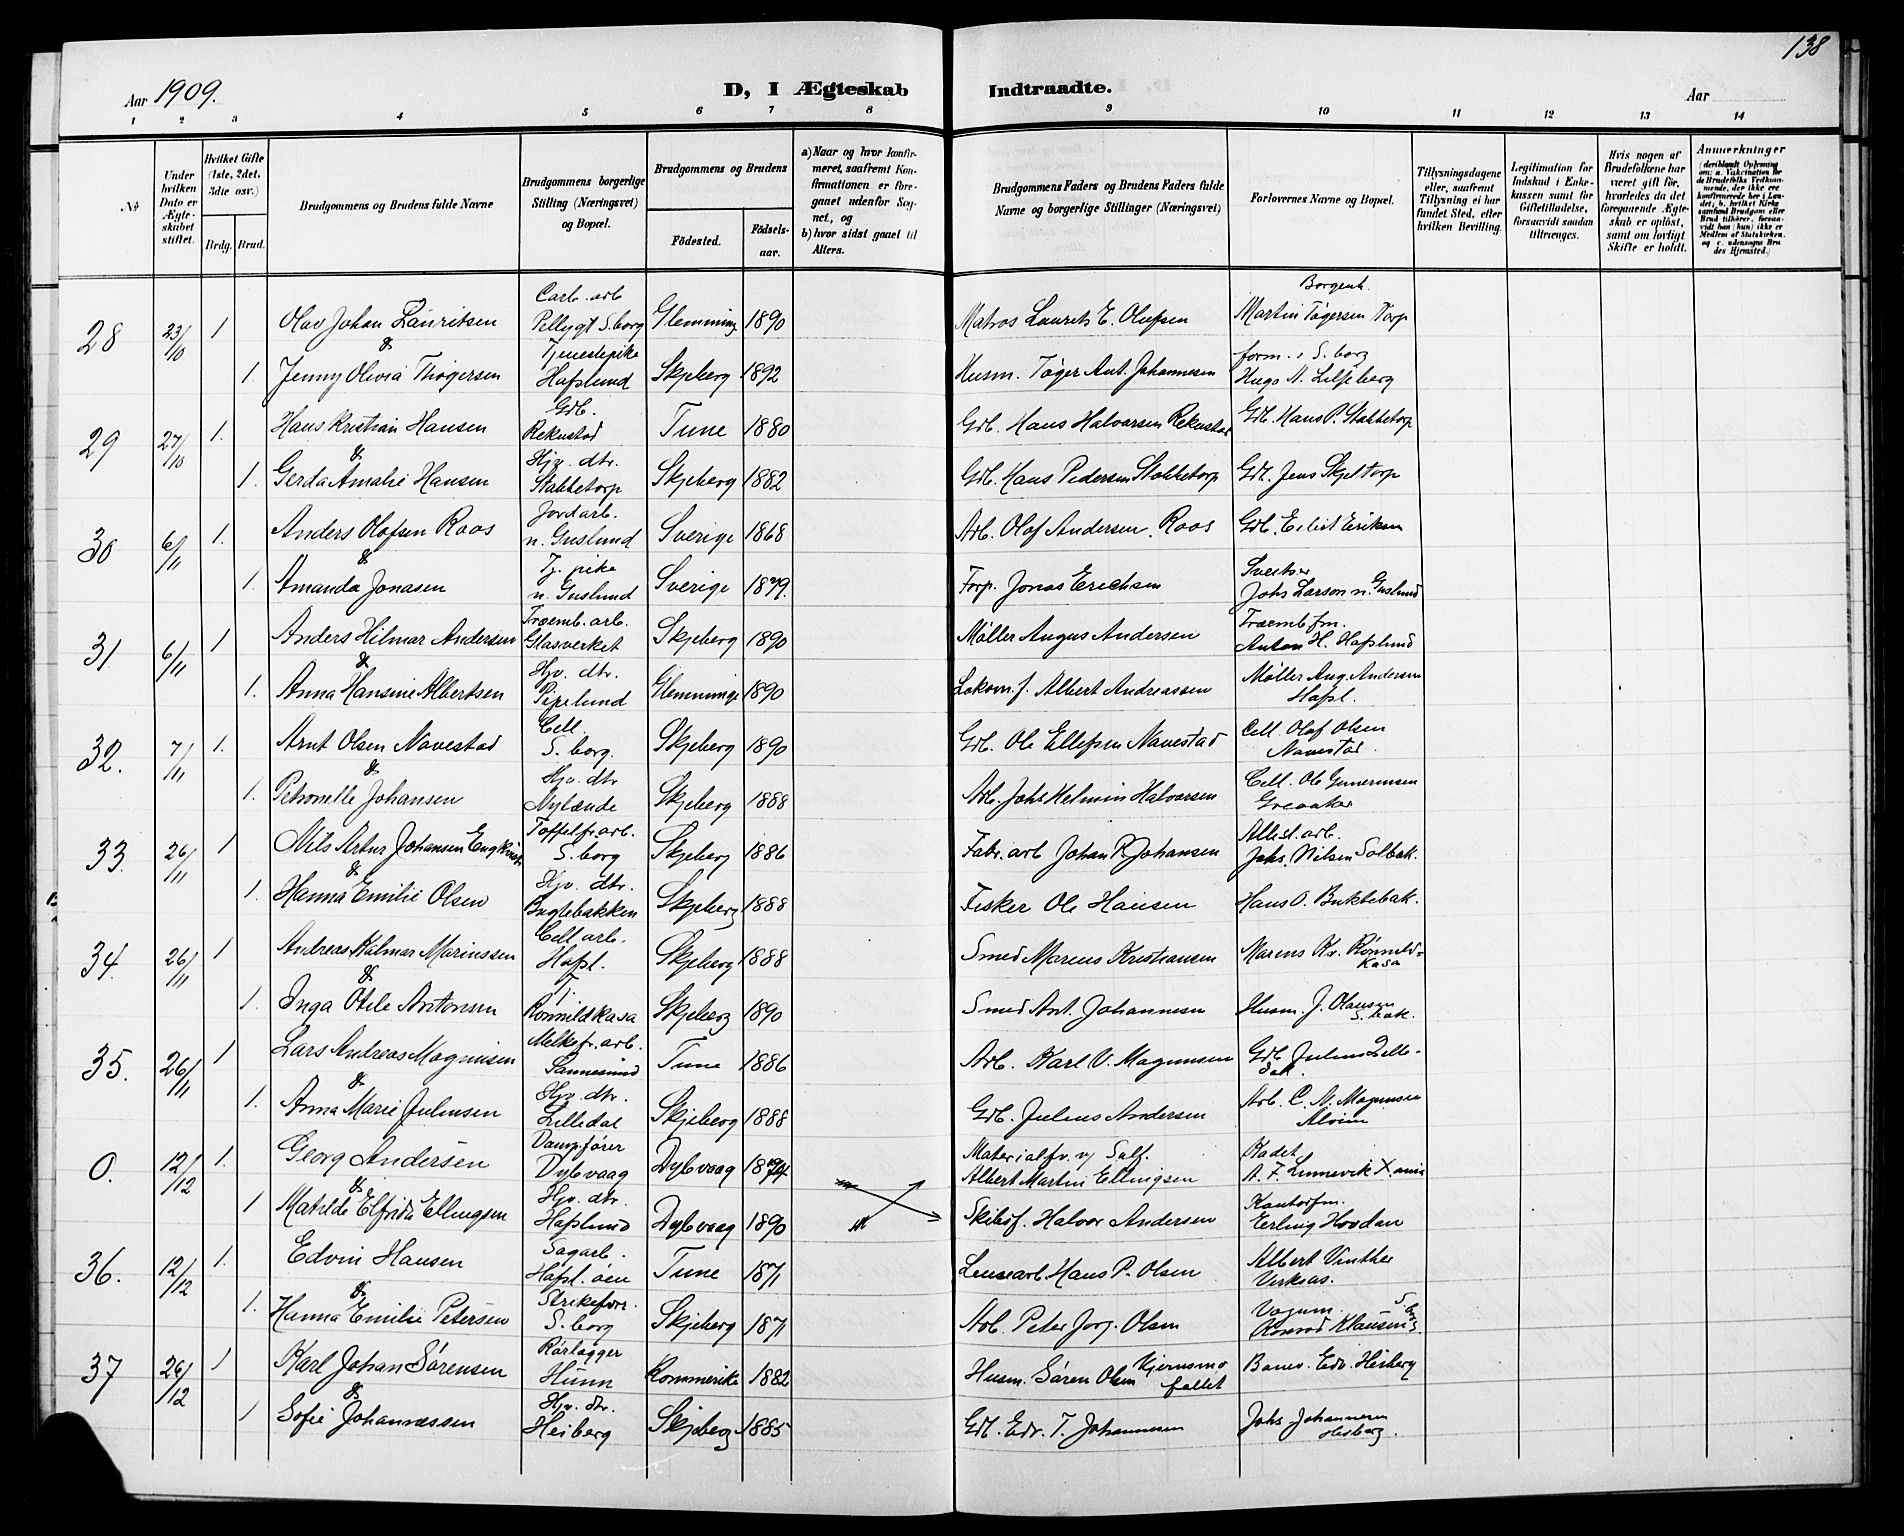 138
Aar 1909.
D, I Ægteskab Indtraadte.
Aar
1 2 3 4 5 6 7 8 9 10 11 12 13 14
No
Under hvilken Dato er Ægteskabet stiftet.
Hvilket Gifte (1ste, 2det, 3die osv.)
Brdg. Brud.
Brudgommens og Brudens fulde Navne
Brudgommens borgerlige Stilling (Næringsvei) og Bopæl.
Brudgommens og Brudens
Födested.
Födselsaar.
a) Naar og hvor konfirmeret, saafremt Konfirmationen er foregaaet udenfor Sognet, og
b) hvor sidst gaaet til Alters.
Brudgommens Faders og Brudens Faders fulde Navne og borgerlige Stillinger (Næringsvei)
Forlovernes Navne og Bopæl.
Tillysningsdagene eller, saafremt Tillysning ei har fundet Sted, efter hvilken Bevilling.
Legitimation for Indskud i Enkekassen samt for Giftetilladelse, forsaavidt saadan tiltrænges.
Hvis nogen af Brudefolkene har været gift för, hvorledes da det foregaaende Ægteskab er oplöst, samt om lovligt Skifte er holdt.
Anmærkninger
(deriblandt Oplysning om: a. Vaccination for de Brudefolks Vedkommende, der ikke ere konfirmerede her i Landet; b. hvilket Kirkesamfund Brudgom eller Brud tilhörer, forsaavidt han (hun) ikke er Medlem af Statskirken, og c. udensogns Brudes Hjemsted.)
28 23/10 1 Olav Johan Lauritsen Carb. arb Pellygt S.borg Glemminge 1890 Matros Laurits E. Olufsen Borgenh. Martin Tøgersen Torp
&
1. Jenny Olivia Thøgersen Tjenestepike Hafslund Skjeberg 1892 Husm. Tøger Ant. Johannesen form. i S. borg Hugo N. Liljeberg
29 27/10 1. Hans Kristian Hansen Grb. Rekustad Tune 1880 Grb. Hans Halvorsen Rekustad Grb. Hans P. Stabbetorp
&
1. Gerda Amalie Hansen Hjv. dtr. Stabbetorp Skjeberg 1882 Grb. Hans Pedersen Stabbetorp Grb. Jens Skjeltorp
30 6/11 1. Anders Olafsen Roos Jordarb. n. Guslund Sverige 1868 Arb. Olof Andersen Roos Grb. Eriksen
&
1. Amanda Jonasen Tj. pike n. Guslund Sverige 1879. Torp. Jonas Erichsen Sveitser Johs Larson n. Guslund
31 6/11 1 Anders Hilmar Andersen Træmb. arb. Glasverket Skjeberg 1890 Møller Augus Andersen Træmb fm. Anton H. Hafslund
&
1. Anna Hansine Albertsen Hjv. dtr. Pipelund Glemminge 1890 Lokom. f. Albert Andreassen Møller Aug. Andersen Hafsl.
32. 7/11 1. Arnt Olsen Navestad Cell. S. borg. Skjeberg 1890 Grb. Ole Ellefsen Navestad Cell. Olaf Olsen Navestad.
&
1. Petronelle Johansen Hjv. dtr Nylænde Skjeberg 1888 Arb. Johs Helmin Halvorsen Cell. Ole Guneriusen Greaaker
33. 26/11 1 Nils Artur Johansen Toffelfr. arb. S. borg Skjeberg 1886 Fabr. arb Johan R Johansen arb. Johs. Nilsen Solbak.
&
1. Hanna Emilie Olsen Hjv. dtr. Bugtebakken Skjeberg 1888 Fisker Ole Hansen Hans O. Buktebak.
34. 26/11 1 Andreas Kalmar Marinssen Cell arb. Hafsl. Skjeberg 1888 Smed Marcus Kristiansen Marcus Kr. Rønnildkasa
&
1. Inga Otele Antonsen Tj. Rønnildkasa Skjeberg 1890 Smed Ant. Johannesen Husm. J. Olausen S. bak.
35. 26/11 1 Lars Andreas Magnusen Melkefr. arb. Sannesund Tune 1886 Arb. Karl V. Magnusen Grb. Julius Lilledal.
&
1. Anna Marie Juliusen Hjv. dtr. Lilledal Skjeberg 1888 Grb. Julius Andersen Arb. C. N. Magnusen Alvim
0. 12/12 1. Georg Andersen Dampfører Dybvaag Dybvaag 1874 Materialfv. v/ Sulf. Albert Martin Ellingsen Kadet A. F. Linnevik X. ania
&
1 Matilde Elfrida Ellingsen Hjv. dtr. Hafslund Dybvaag 1890 Skibsf. Halvor Andersen Kontorfm. Erling Hovdan
36. 12/12 1. Edvin Hansen Sagarb. Hafsl. öen Tune 1871 Lensearb. Hans P. Olsen Albert Vinther Verksas.
&
1. Hanna Emilie Petersen Strikeforr. S. borg Skjeberg 1871 Arb. Peter Jorg. Olsen Vognm. Konrad Klausen S.bg.
37 26/12 1 Karl Johan Sørensen Rørlægger Hunn Rommerike 1882 Husm. Søren Olsen Kjernsmofallet Banev. Edv. Heiberg
&
1 Sofie Johannessen Hjv. dtr. Heiberg Skjeberg 1885 Grb. Edv. T. Johannesen Johs Johannesen Heiberg.